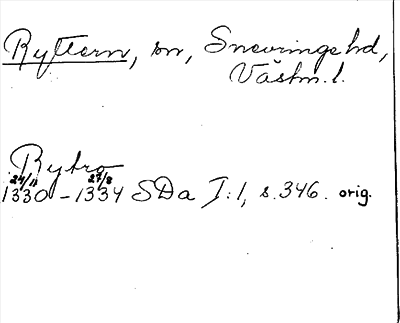 Ryttern, sn, Snevringe hd,
Västm. l.
Rytro
24/11 27/8
1330 - 1334 SDa I:1, s. 346. orig.